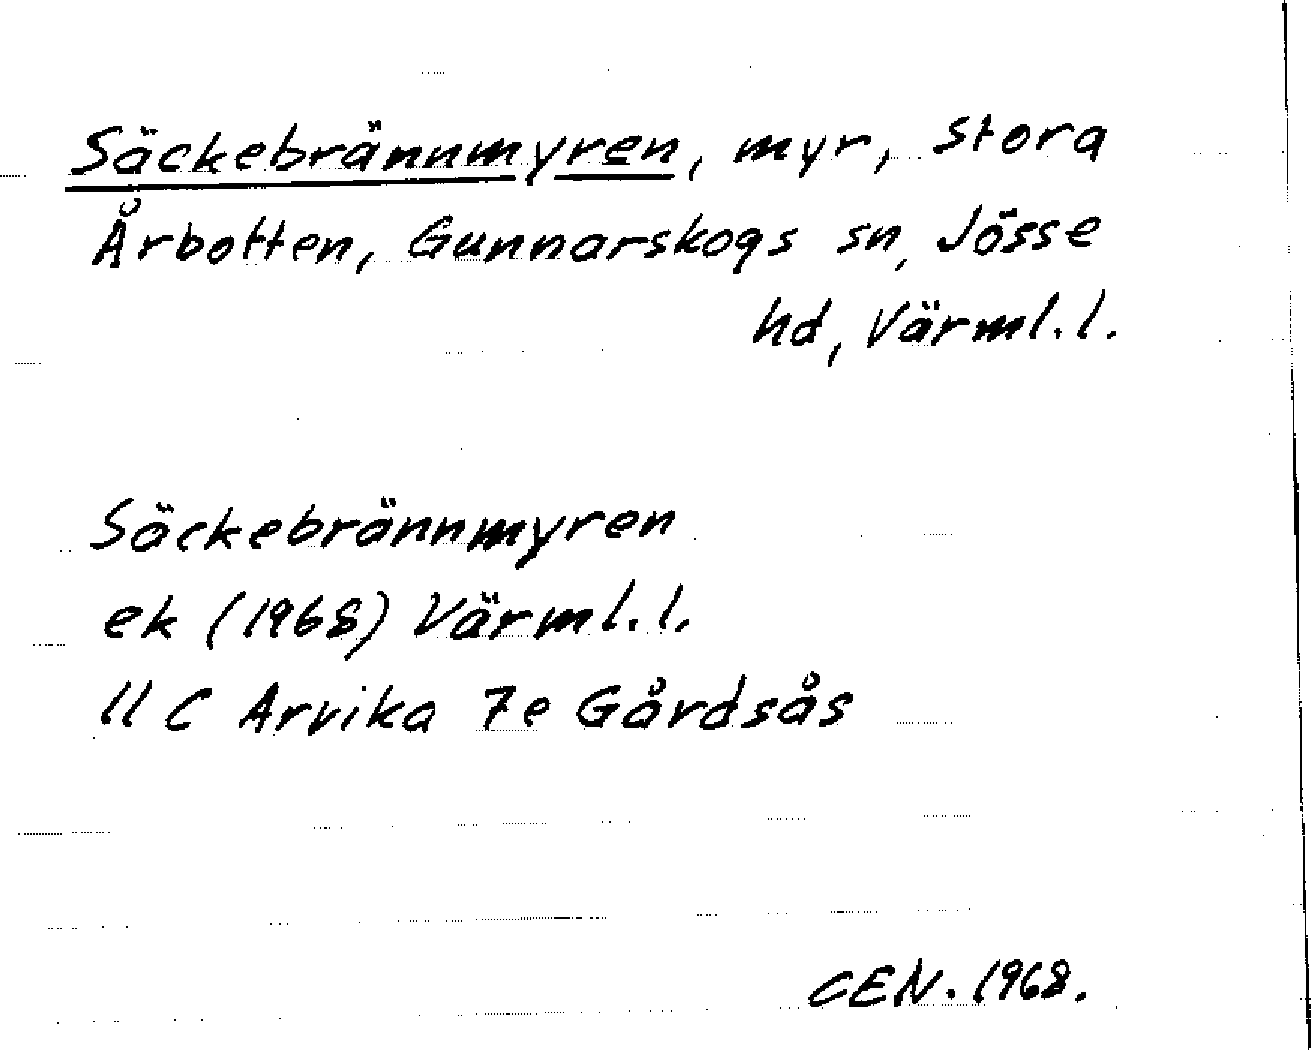 Säckebrännmyren, myr, Stora
Årbotten, Gunnarskogs sn, Jösse
hd, Värml.l.
Säckebrännmyren
ek (1968) Värml.l.
11 C Arvika 7e Gårdsås
CEN. 1968.